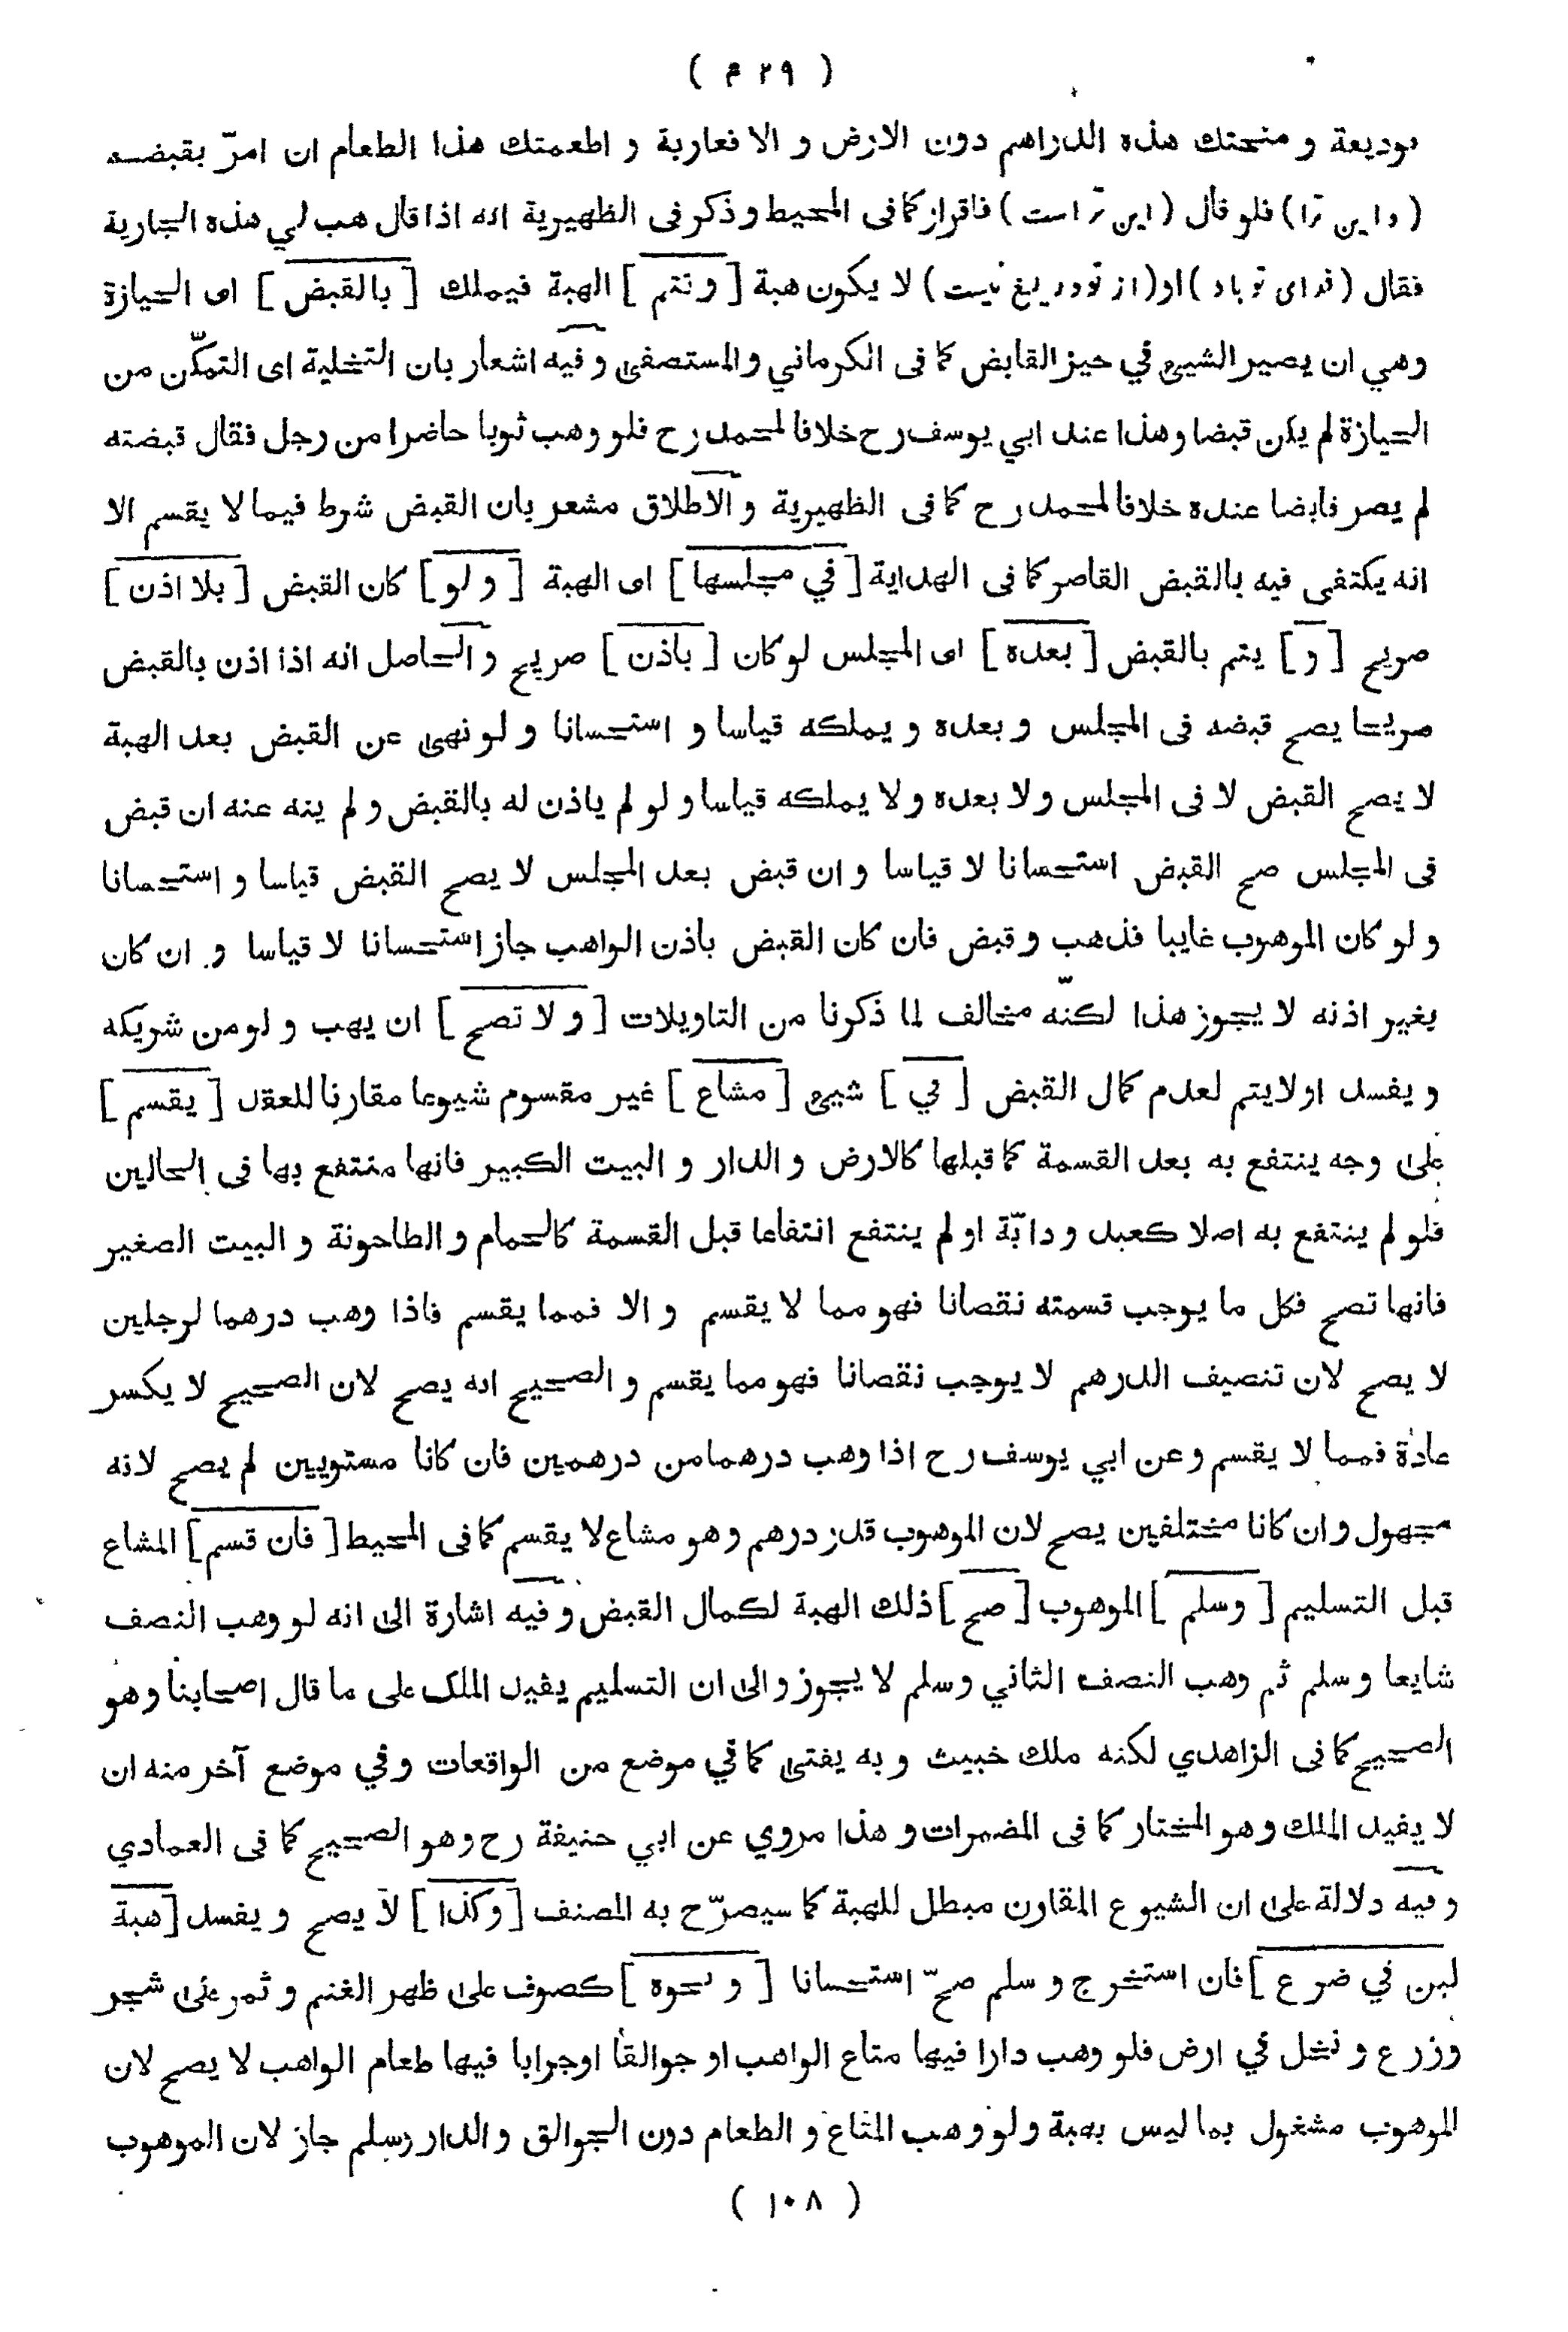 ( ٤٢٩ )
بوديعة و منحتك هذه الدراهم دون الارض و الا فعارية و اطعمتك هذا الطعام ان امرّ بقبضه
( و اين ترا ) فلو قال ( اين تراست ) فاقرار كما فى المحيط و ذكر فى الظهيرية انه اذا قال هب لي هذه الجارية
فقال ( فداى تو باد ) او ( از تو دريغ نيست ) لا يكون هبة [ و تتم ] الهبة فيملك [ بالقبض ] اى الحيازة
وهي ان يصير الشيئ في حيز القابض كما فى الكرماني والمستصفى و فيه اشعار بان التخلية اى التمكّن من
الحيازة لم يكن قبضا وهذا عند ابي يوسف رح خلافا لمحمد رح فلو وهب ثوبا حاضرا من رجل فقال قبضته
لم يصر قابضا عنده خلافا لمحمد رح كما فى الظهيرية و الاطلاق مشعر بان القبض شرط فيما لا يقسم الا
انه يكتفى فيه بالقبض القاصر كما فى الهداية [ في مجلسها ] اى الهبة [ و لو ] كان القبض [ بلا اذن ]
صريح [ و ] يتم بالقبض [ بعده ] اى المجلس لو كان [ باذن ] صريح و الحاصل انه اذا اذن بالقبض
صريحا يصح قبضه فى المجلس و بعده و يملكه قياسا و استحسانا و لو نهى عن القبض بعد الهبة
لا يصح القبض لا فى المجلس ولا بعده ولا يملكه قياسا و لو لم ياذن له بالقبض و لم ينه عنه ان قبض
فى المجلس صح القبض استحسانا لا قياسا و ان قبض بعد المجلس لا يصح القبض قياسا و استحسانا
و لو كان الموهوب غايبا فذهب و قبض فان كان القبض باذن الواهب جاز استحسانا لا قياسا و ان كان
بغير اذنه لا يجوز هذا لكنّه مخالف لما ذكرنا من التاويلات [ و لا تصح ] ان يهب و لو من شريكه
و يفسد اولايتم لعدم كمال القبض [ في ] شيئ [ مشاع ] غير مقسوم شيوعا مقارنا للعقد [ يقسم ]
على وجه ينتفع به بعد القسمة كما قبلها كالارض و الدار و البيت الكبير فانها منتفع بها فى الحالين
فلو لم ينتفع به اصلا كعبد و دابّة او لم ينتفع انتفاعا قبل القسمة كالحمام و الطاحونة و البيت الصغير
فانها تصح فكل ما يوجب قسمته نقصانا فهو مما لا يقسم و الا فمما يقسم فاذا وهب درهما لرجلين
لا يصح لان تنصيف الدرهم لا يوجب نقصانا فهو مما يقسم و الصحيح انه يصح لان الصحيح لا يكسر
عادة فمما لا يقسم و عن ابي يوسف رح اذا وهب درهما من درهمين فان كانا مستويين لم يصح لانه
مجهول و ان كانا مختلفين يصح لان الموهوب قدر درهم و هو مشاع لا يقسم كما فى المحيط [ فان قسم ] المشاع
قبل التسليم [ وسلم ] الموهوب [ صح ] ذلك الهبة لكمال القبض و فيه اشارة الى انه لو وهب النصف
شايعا و سلم ثم وهب النصف الثاني وسلم لا يجوز والى ان التسليم يفيد الملك على ما قال اصحابنا و هو
الصحيح كما فى الزاهدي لكنه ملك خبيث و به يفتى كما في موضع من الواقعات و في موضع آخر منه ان
لا يفيد الملك و هو المختار كما فى المضمرات و هذا مروي عن ابي حنيفة رح و هو الصحيح كما فى العمادي
و فيه دلالة على ان الشيوع المقارن مبطل للهبة كما سيصرّح به المصنف [ وكذا ] لا يصح و يفسد [ هبة
لبن في ضرع ] فان استخرج و سلم صحّ استحسانا [ و نحوه ] كصوف على ظهر الغنم و ثمر على شجر
وزرع و نخل في ارض فلو وهب دارا فيها متاع الواهب او جوالقا اوجرابا فيها طعام الواهب لا يصح لان
الموهوب مشغول بما ليس بهبة و لو وهب المتاع و الطعام دون الجوالق و الدار وسلم جاز لان الموهوب
( ١٠٨ )